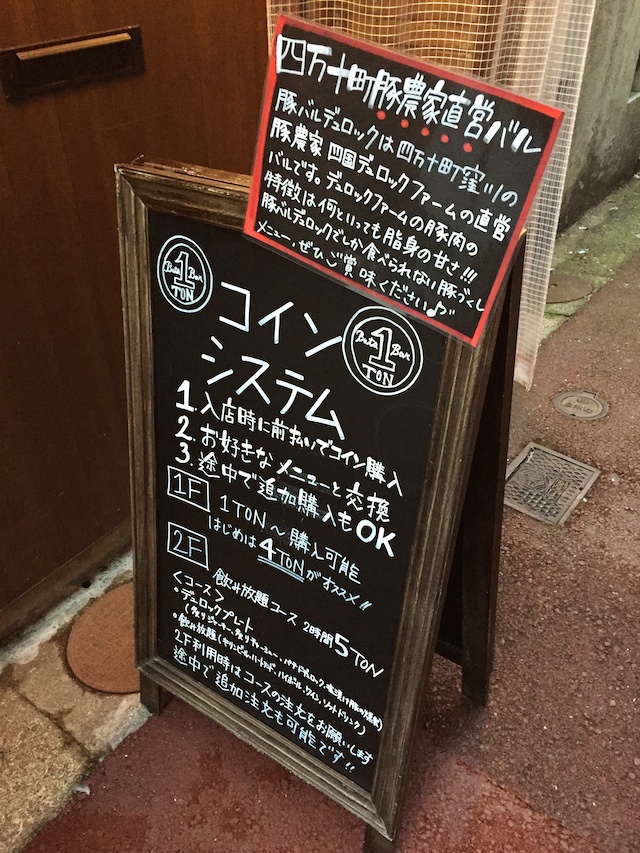 四万十町豚農家直営バル
豚バルデュロックは四万十町窪川の
豚農家 四国デュロックファームの直営
バルです。デュロックファームの豚肉の
特徴は何といっても脂身の甘さ!!!
豚バルデュロックでしか食べられない豚づくし
メニュー、ぜひご賞味ください♪
Buta Bar
1
TON
コイン
システム
Buta Bar
1
TON
1. 入店時に前払いでコイン購入
2. お好きなメニューと交換
3. 途中で追加購入もOK
1F 1TON〜購入可能
はじめは4TONがオススメ!!
2F
<コース> 飲み放題コース 2時間 5TON
・デュロックプレート
・飲み放題(
ハイボール、ワイン、ソフトドリンク)
2F利用時はコースの注文をお願いします
途中で追加注文も可能です!!